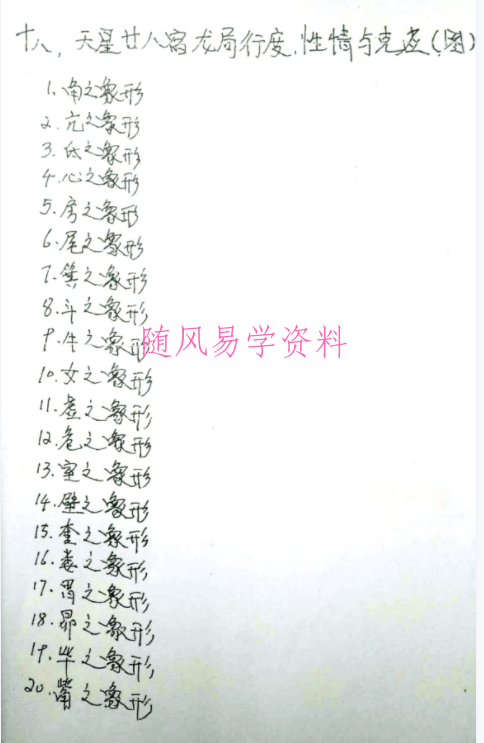 十八，天星廿八宿龙局行度，性情与克应(图)
1.角之象形
2.亢之象形
3.氐之象形
4.心之象形
5.房之象形
6.尾之象形
7.箕之象形
8.斗之象形
9.牛之象形
随风易学资料
10.女之象形
11.虚之象形
12.危之象形
13.室之象形
14.壁之象形
15.奎之象形
16.娄之象形,
17.胃之象形,
18.昴之象形,
19.毕之象形,
20.觜之象形,